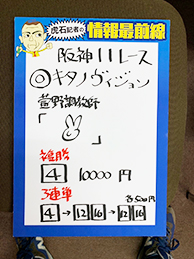 虎石記者の情報最前線
阪神11レース
◎キタノヴィジョン
萱野調教師
「
」
複勝
4 10000円
3連単
各500円
4→12 16→12 16